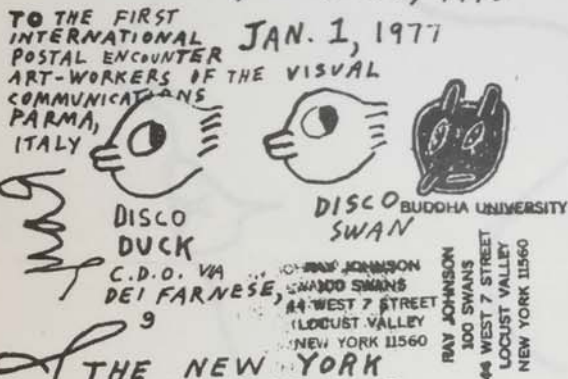 TO THE FIRST
INTERNATIONAL
POSTAL ENCOUNTER
ART-WORKERS OF THE VISUAL
COMMUNICATIONS
PARMA,
ITALY
JAN. 1, 1977
DISCO
DUCK
DISCO
SWAN
BUDDHA UNIVERSITY
C.D.O. VIA
DEI FARNESE,
9
RAY JOHNSON
100 SWANS
44 WEST 7 STREET
LOCUST VALLEY
NEW YORK 11560
RAY JOHNSON
100 SWANS
44 WEST 7 STREET
LOCUST VALLEY
NEW YORK 11560
THE NEW YORK